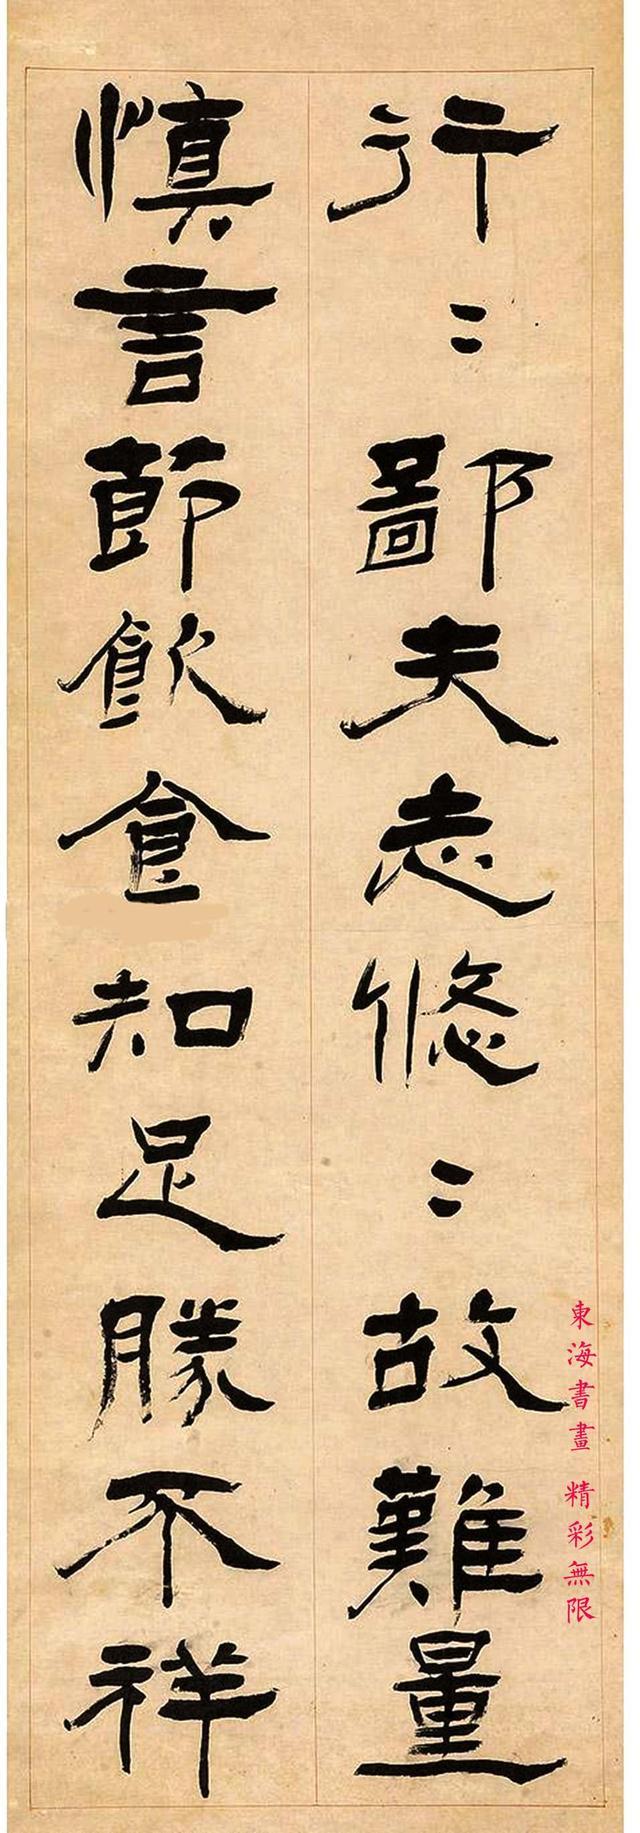 行〻鄙夫志悠〻故難量
慎言節飲食知足勝不祥
東海書畫 精彩無限